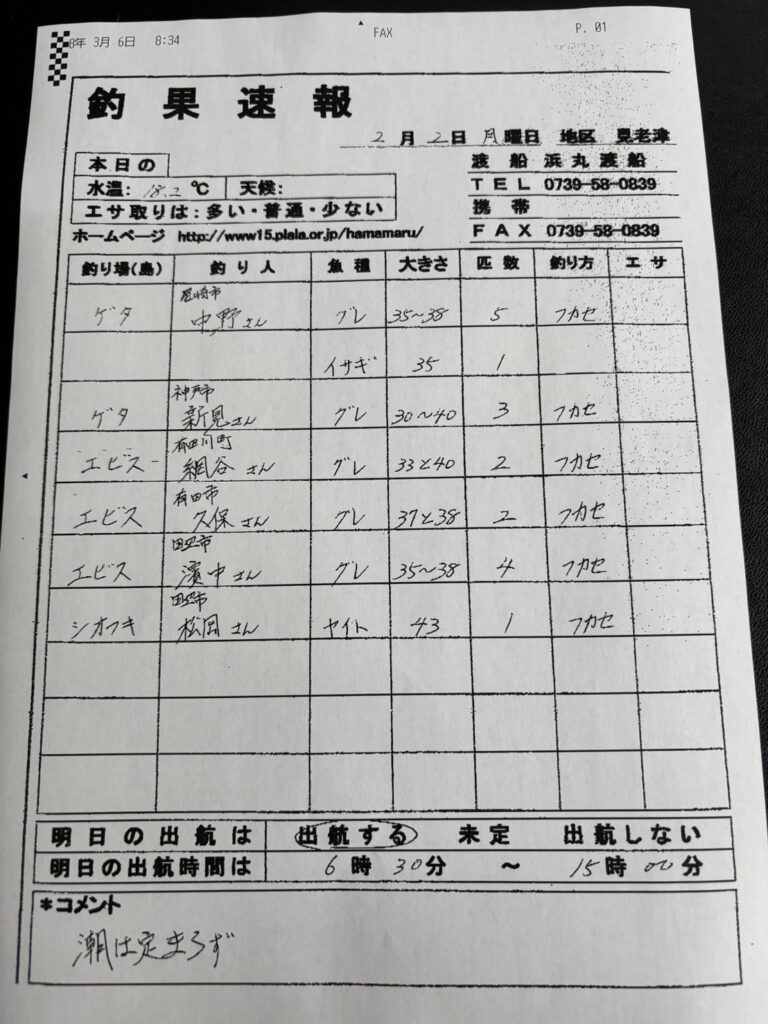 8年 3月 6日 8:34 FAX P. 01
釣果速報
2月2日月曜日 地区 見老津
本日の
水温: 18.2 ℃ 天候:
エサ取りは:多い・普通・少ない
渡船 浜丸渡船
TEL 0739-58-0839
携帯
FAX 0739-58-0839
ホームページ http://www15.plala.or.jp/hamamaru/
釣り場(島) 釣り人 魚種 大きさ 匹数 釣り方 エサ
尼崎市
ゲタ 中野さん グレ 35〜38 5 フカセ
イサギ 35 1
神戸市
ゲタ 新見さん グレ 30〜40 3 フカセ
有田川町
エビス 網谷さん グレ 33と40 2 フカセ
有田市
エビス 久保さん グレ 37と38 2 フカセ
田辺市
エビス 濱中さん グレ 35〜38 4 フカセ
田辺市
シオフキ 松岡さん ヤイト 43 1 フカセ
明日の出航は 出航する 未定 出航しない
明日の出航時間は 6時30分 〜 15時00分
*コメント
潮は定まらず